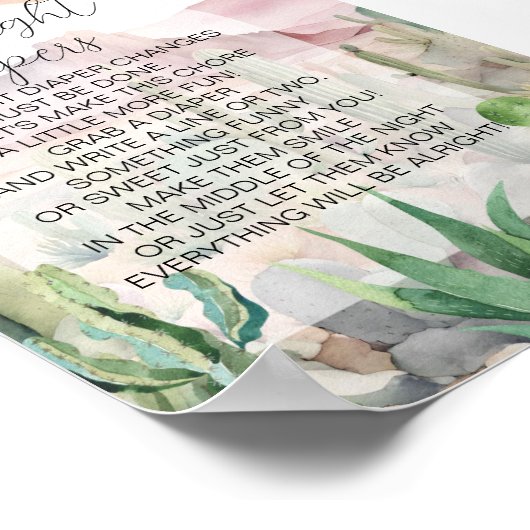 ght
pers
T DIAPER CHANGES
UST BE DONE.
T'S MAKE THIS CHORE
A LITTLE MORE FUN!
GRAB A DIAPER
AND WRITE A LINE OR TWO.
SOMETHING FUNNY
OR SWEET JUST FROM YOU!
MAKE THEM SMILE
IN THE MIDDLE OF THE NIGHT
OR JUST LET THEM KNOW
EVERYTHING WILL BE ALRIGHT!